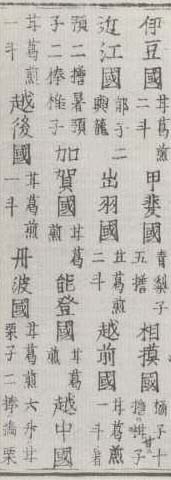 伊豆國 甘葛煎二斗 甲斐國 青梨子五擔 相摸國 橘子十擔柑子
近江國 郁子二輿籠 出羽國 甘葛煎二斗 越前國 甘葛煎一斗暑
預二擔暑預子二棒椎子 加賀國 甘葛煎 能登國 甘葛煎 越中國
甘葛煎一斗 越後國 甘葛煎一斗 丹波國 甘葛煎六升甘栗子二棒搗栗